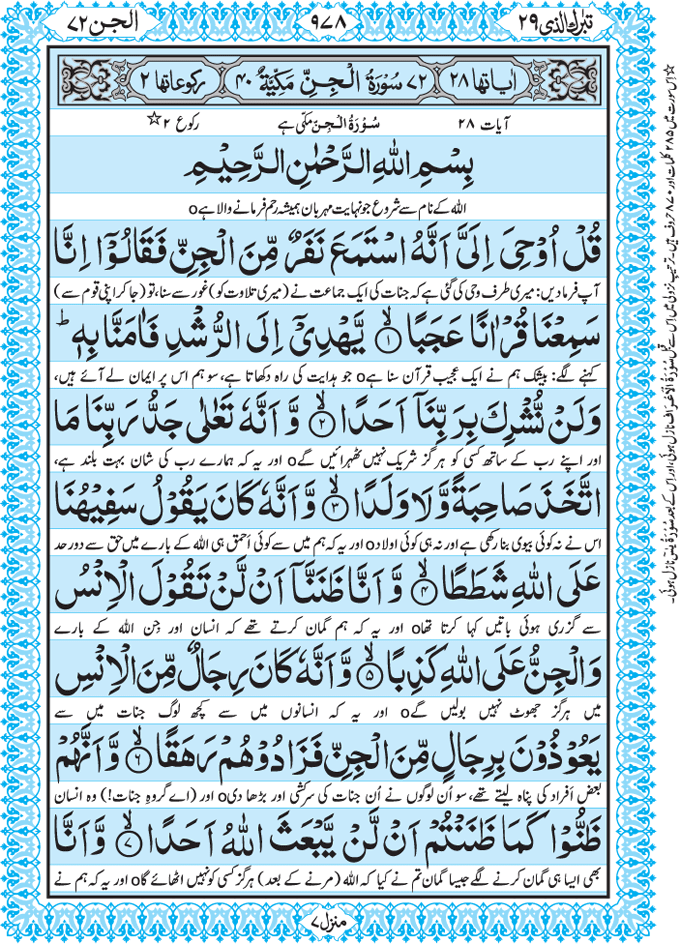 تبٰرك الذی ٢٩
٩٧٨
الجن ٧٢
اٰیاتها ٢٨
٧٢ سُوْرَةُ الْجِنِّ مَكِّیَّةٌ ٤٠
رکوعاتها ٢
آیات ۲۸
سُوْرَۃُ الْجِنّ مکی ہے
رکوع ۲ ☆
بِسْمِ اللّٰهِ الرَّحْمٰنِ الرَّحِیْمِ
اللہ کے نام سے شروع جو نہایت مہربان ہمیشہ رحم فرمانے والا ہے o
قُلْ اُوْحِیَ اِلَیَّ اَنَّهُ اسْتَمَعَ نَفَرٌ مِّنَ الْجِنِّ فَقَالُوْۤا اِنَّا
آپ فرما دیں: میری طرف وحی کی گئی ہے کہ جنات کی ایک جماعت نے (میری تلاوت کو) غور سے سنا، تو (جا کر اپنی قوم سے)
سَمِعْنَا قُرْاٰنًا عَجَبًا ۙ﴿۱﴾ یَّهْدِیْۤ اِلَی الرُّشْدِ فَاٰمَنَّا بِهٖ ؕ
کہنے لگے: بیشک ہم نے ایک عجیب قرآن سنا ہے o جو ہدایت کی راہ دکھاتا ہے، سو ہم اس پر ایمان لے آئے ہیں،
وَلَنْ نُّشْرِكَ بِرَبِّنَاۤ اَحَدًا ۙ﴿۲﴾ وَّ اَنَّهٗ تَعٰلٰی جَدُّ رَبِّنَا مَا
اور اپنے رب کے ساتھ کسی کو ہرگز شریک نہیں ٹھہرائیں گے o اور یہ کہ ہمارے رب کی شان بہت بلند ہے،
اتَّخَذَ صَاحِبَةً وَّ لَا وَلَدًا ۙ﴿۳﴾ وَّ اَنَّهٗ كَانَ یَقُوْلُ سَفِیْهُنَا
اس نے نہ کوئی بیوی بنا رکھی ہے اور نہ ہی کوئی اولاد o اور یہ کہ ہم میں سے کوئی اَحمق ہی اللہ کے بارے میں حق سے دور حد
عَلَی اللّٰهِ شَطَطًا ۙ﴿۴﴾ وَّ اَنَّا ظَنَنَّاۤ اَنْ لَّنْ تَقُوْلَ الْاِنْسُ
سے گزری ہوئی باتیں کہا کرتا تھا o اور یہ کہ ہم گمان کرتے تھے کہ انسان اور جِن اللہ کے بارے
وَالْجِنُّ عَلَی اللّٰهِ كَذِبًا ۙ﴿۵﴾ وَّ اَنَّهٗ كَانَ رِجَالٌ مِّنَ الْاِنْسِ
میں ہرگز جھوٹ نہیں بولیں گے o اور یہ کہ انسانوں میں سے کچھ لوگ جنات میں سے
یَعُوْذُوْنَ بِرِجَالٍ مِّنَ الْجِنِّ فَزَادُوْهُمْ رَهَقًا ۙ﴿۶﴾ وَّ اَنَّهُمْ
بعض اَفراد کی پناہ لیتے تھے، سو اُن لوگوں نے اُن جنات کی سرکشی اور بڑھا دی o اور (اے گروہِ جنات!) وہ انسان
ظَنُّوْا كَمَا ظَنَنْتُمْ اَنْ لَّنْ یَّبْعَثَ اللّٰهُ اَحَدًا ۙ﴿۷﴾ وَّ اَنَّا
بھی ایسا ہی گمان کرنے لگے جیسا گمان تم نے کیا کہ اللہ (مرنے کے بعد) ہرگز کسی کو نہیں اٹھائے گا o اور یہ کہ ہم نے
منزل ۷
☆ اِس سورت میں ۲۸۵ کلمات اور ۸۷۰ حروف ہیں۔ ترتیبِ نزولی میں اس سے قبل سُوْرَۃُ الْاَعْرَاف نازل ہوئی، اور اس کے بعد سُوْرَۃُ یٰسٓ نازل ہوئی۔